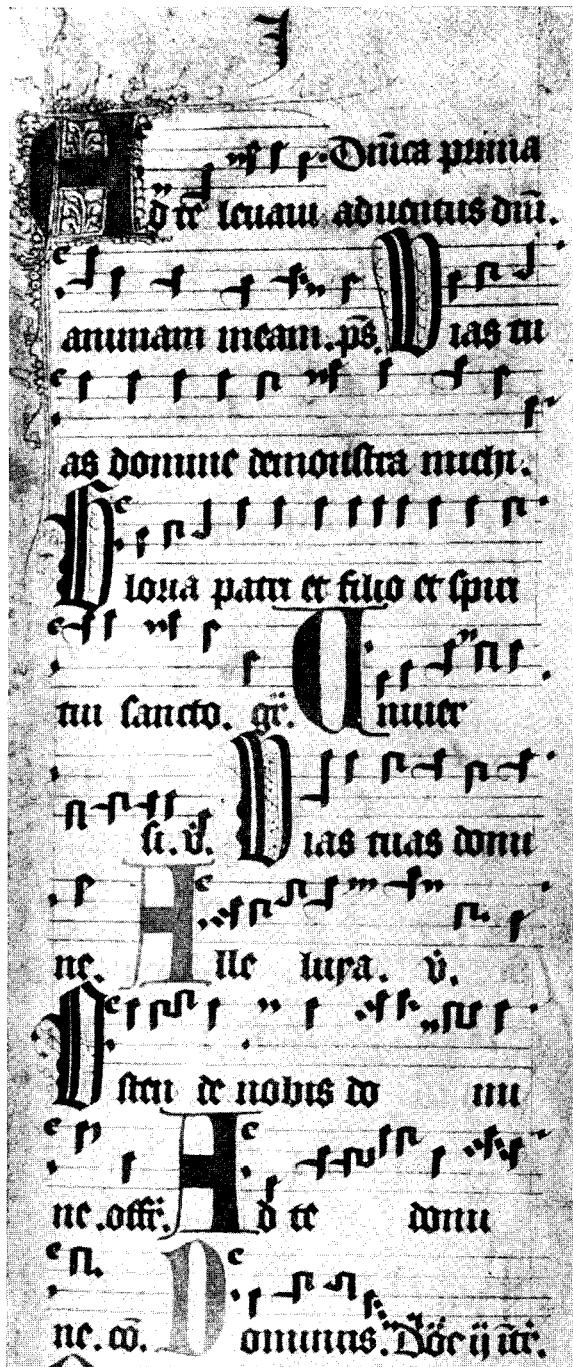 I
Dn̄ica prima
Ad te leuaui aduentus dn̄i.
animam meam. ps̄. Uias tu
as domine demonstra michi.
Gloria patri et filio et spiri
tui sancto. gr̄. Uniuer
si. v̄. Uias tuas domi
ne. Alle luya. v̄.
Osten de nobis do mi
ne. offr̄. Ad te domi
ne. co̅. Dominus. Dōc ij it̄r.